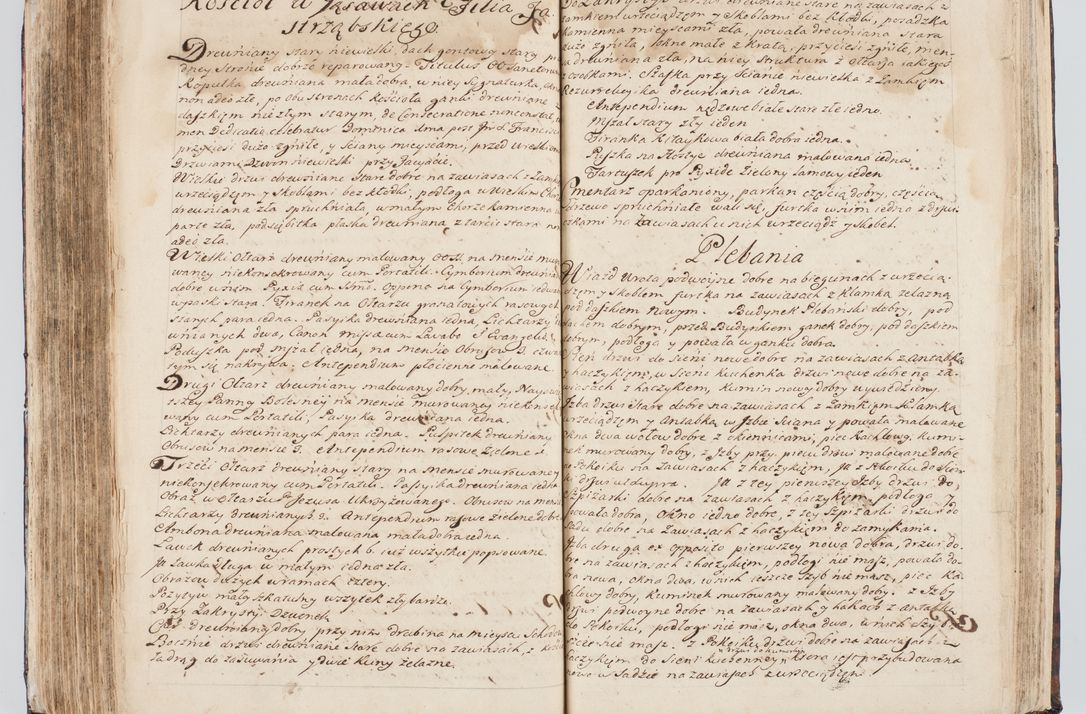 Kościoł w Filia Ja
strząbskiego.
Drewniany stary niewielki, dach gontowy stary
dney stronie dobrze reparowany. Titulus OO. Sanctorum
Kopułka drewniana mała dobra, w niey Sygnaturka,
non adeo złe, po obu stronach Kościoła ganki drewniane
daszkiem niezłym starym, de Consecratione non constat,
men Dedicatio celebratur Dominica 1ma post Fr. S. Francisci
przyciesi duże zgniłe, y ściany mieyscami, przed wielkiemi
Drzwiami Dzwon niewielki przy Facyacie.
Wielkie drzwi drewniane stare dobre na zawiasach z Zamk
wrzeciądzem y Skoblami bez kłodki, podłoga w Wielkim Chor
drewniana zła spruchniała, w małym Chorze kamienna
parte zła, podsiębitka płaska drewniana z tarcic stara non
adeo zła.
Wielki Ołtarz drewniany malowany na mensie mu
wancy niekonsekrowany cum Portatili. Cymborium drewnia
dobre w nim Puxis cum Ssmo. Oppona na Cymborium iedwa
w paski stara. Firanek na Ołtarzu granatowych rasowych
starych para iedna. Passyika drewniana iedna, Lichtarzy
wnianych dwa, Canon missæ cum Lavabo et Evangelio.
Poduszka pod mszał iedna, na Mensie Obrusow 3. czwar
tym się nakrywa. Antependium płocienne malowane.
Drugi Ołtarz drewniany malowany dobry, mały, Nayświę
tszey Panny Bolesney na mensie murowaney niekonsek
wany cum Portatili. Passyika drewniana iedna.
Lichtarzy drewnianych para iedna. Pulpitek drewniany
Obrusow na mensie 3. Antependium rasowe zielone 1.
Trzeci Ołtarz drewniany stary na mensie murowaney
niekonsekrowany cum Portatili. Passyika drewniana iedna
Obraz w Ołtarzu P. Jezusa Ukrzyżowanego. Obrusow na mens
Lichtarzy drewnianych 3. Antependium rasowe zielone dobre
Ambona drewniana malowana mała dobra iedna.
Ławek drewnianych prostych 6. iuż wszystkie popsowane.
Ja Ławka długa w małym iedna zła.
Obrazow dużych w ramach cztery.
Pozytyw mały szkatulny wszytek zły bardzo.
Przy Zakrystyi Dzwonek
drewniany dobry, przy nim Drabina na mieyscu Schodow
Bocznie drzwi drewniane stare dobre na zawiasach, z
ta drąg do zasuwania y dwie kuny żelazne.
Do Zakrystyi drzwi drewniane stare na zawiasach z
zamkiem wrzeciądzem y Skoblami bez kłodki, posadzka
kamienna mieyscami zła, powała drewniana stara
dużo zgniła, okno małe z kratą, przyciesi zgniłe, men-
sa drewniana zła, na niey struktura z Ołtarza iakiegoś
z osobkami. Szafka przy ścianie niewielka z Zamkiem
Rezurekcyika drewniana iedna.
Antependium nędzowe białe stare złe iedno.
Mszał stary zły ieden
Firanka kitaykowa biała dobra iedna.
Puszka na Hostye drewniana malowana iedna.
Fartuszek pro Pyxide zielony lamowy ieden
Cmentarz oparkaniony, parkan częścią dobry, częścią
drzewo spruchniałe wali się, furtka w nim iedna z drzwi
czkami na zawiasach u nich wrzeciądz y skobel.
Plebania
Wiazd Wrota podwoyne dobre na biegunach z wrzecią-
dzem y Skoblem furtka na zawiasach z klamką żelazną
pod daszkiem nowym. Budynek Plebański dobry, pod
dachem dobrym, przed Budynkiem ganek dobry, pod daszkiem
dobrym, podłoga y powała w ganku dobra.
Sień drzwi do Sieni nowe dobre na zawiasach z Antabką
y haczykiem, w Sieni kuchenka drzwi nowe dobre na za-
wiasach z haczykiem, kumin nowy dobry wywiedziony.
Izba drzwi stare dobre na zawiasach z Zamkiem Klamką
wrzeciądzem y Antabką w Izbie Sciana y powała malowane
okna dwa w ołow dobre z okiennicami, piec kachlowy, kumi-
nek murowany dobry, z Izby przy piecu drzwi malowane dobre
Pokoiku na zawiasach z haczykiem, Ja z Pokoiku do Sieni
drzwi w kupra. Ja z tey pierwszey Izby drzwi do
Szpizarki dobre na zawiasach z haczykiem, podłoga Ja
powała dobra, okno iedno dobre, z tey Szpizarki drzwi do
Sadu dobre na zawiasach z haczykiem do zamykania.
Izba druga ex opposito pierwszey nowa dobra, drzwi do-
bre na zawiasach z haczykiem, podłogi nie masz, powała do-
bra nowa, okna dwa, w nich ieszcze szyb niemasz, piec ka-
chlowy dobry, kuminek murowany malowany dobry. z Izby
drzwi podwoyne dobre na zawiasach y hakach z antabką
do Pokoiku, podłogi nie masz, okna dwa, w nich szyb ie-
szcze nie masz. z Pokoiku drzwi dobre na zawiasach z
haczykiem do Sieni kuchenney, drzwi do kumina ktora iest przybudowana
nowo w Sadzie na zawiasach z wrzeciądzem